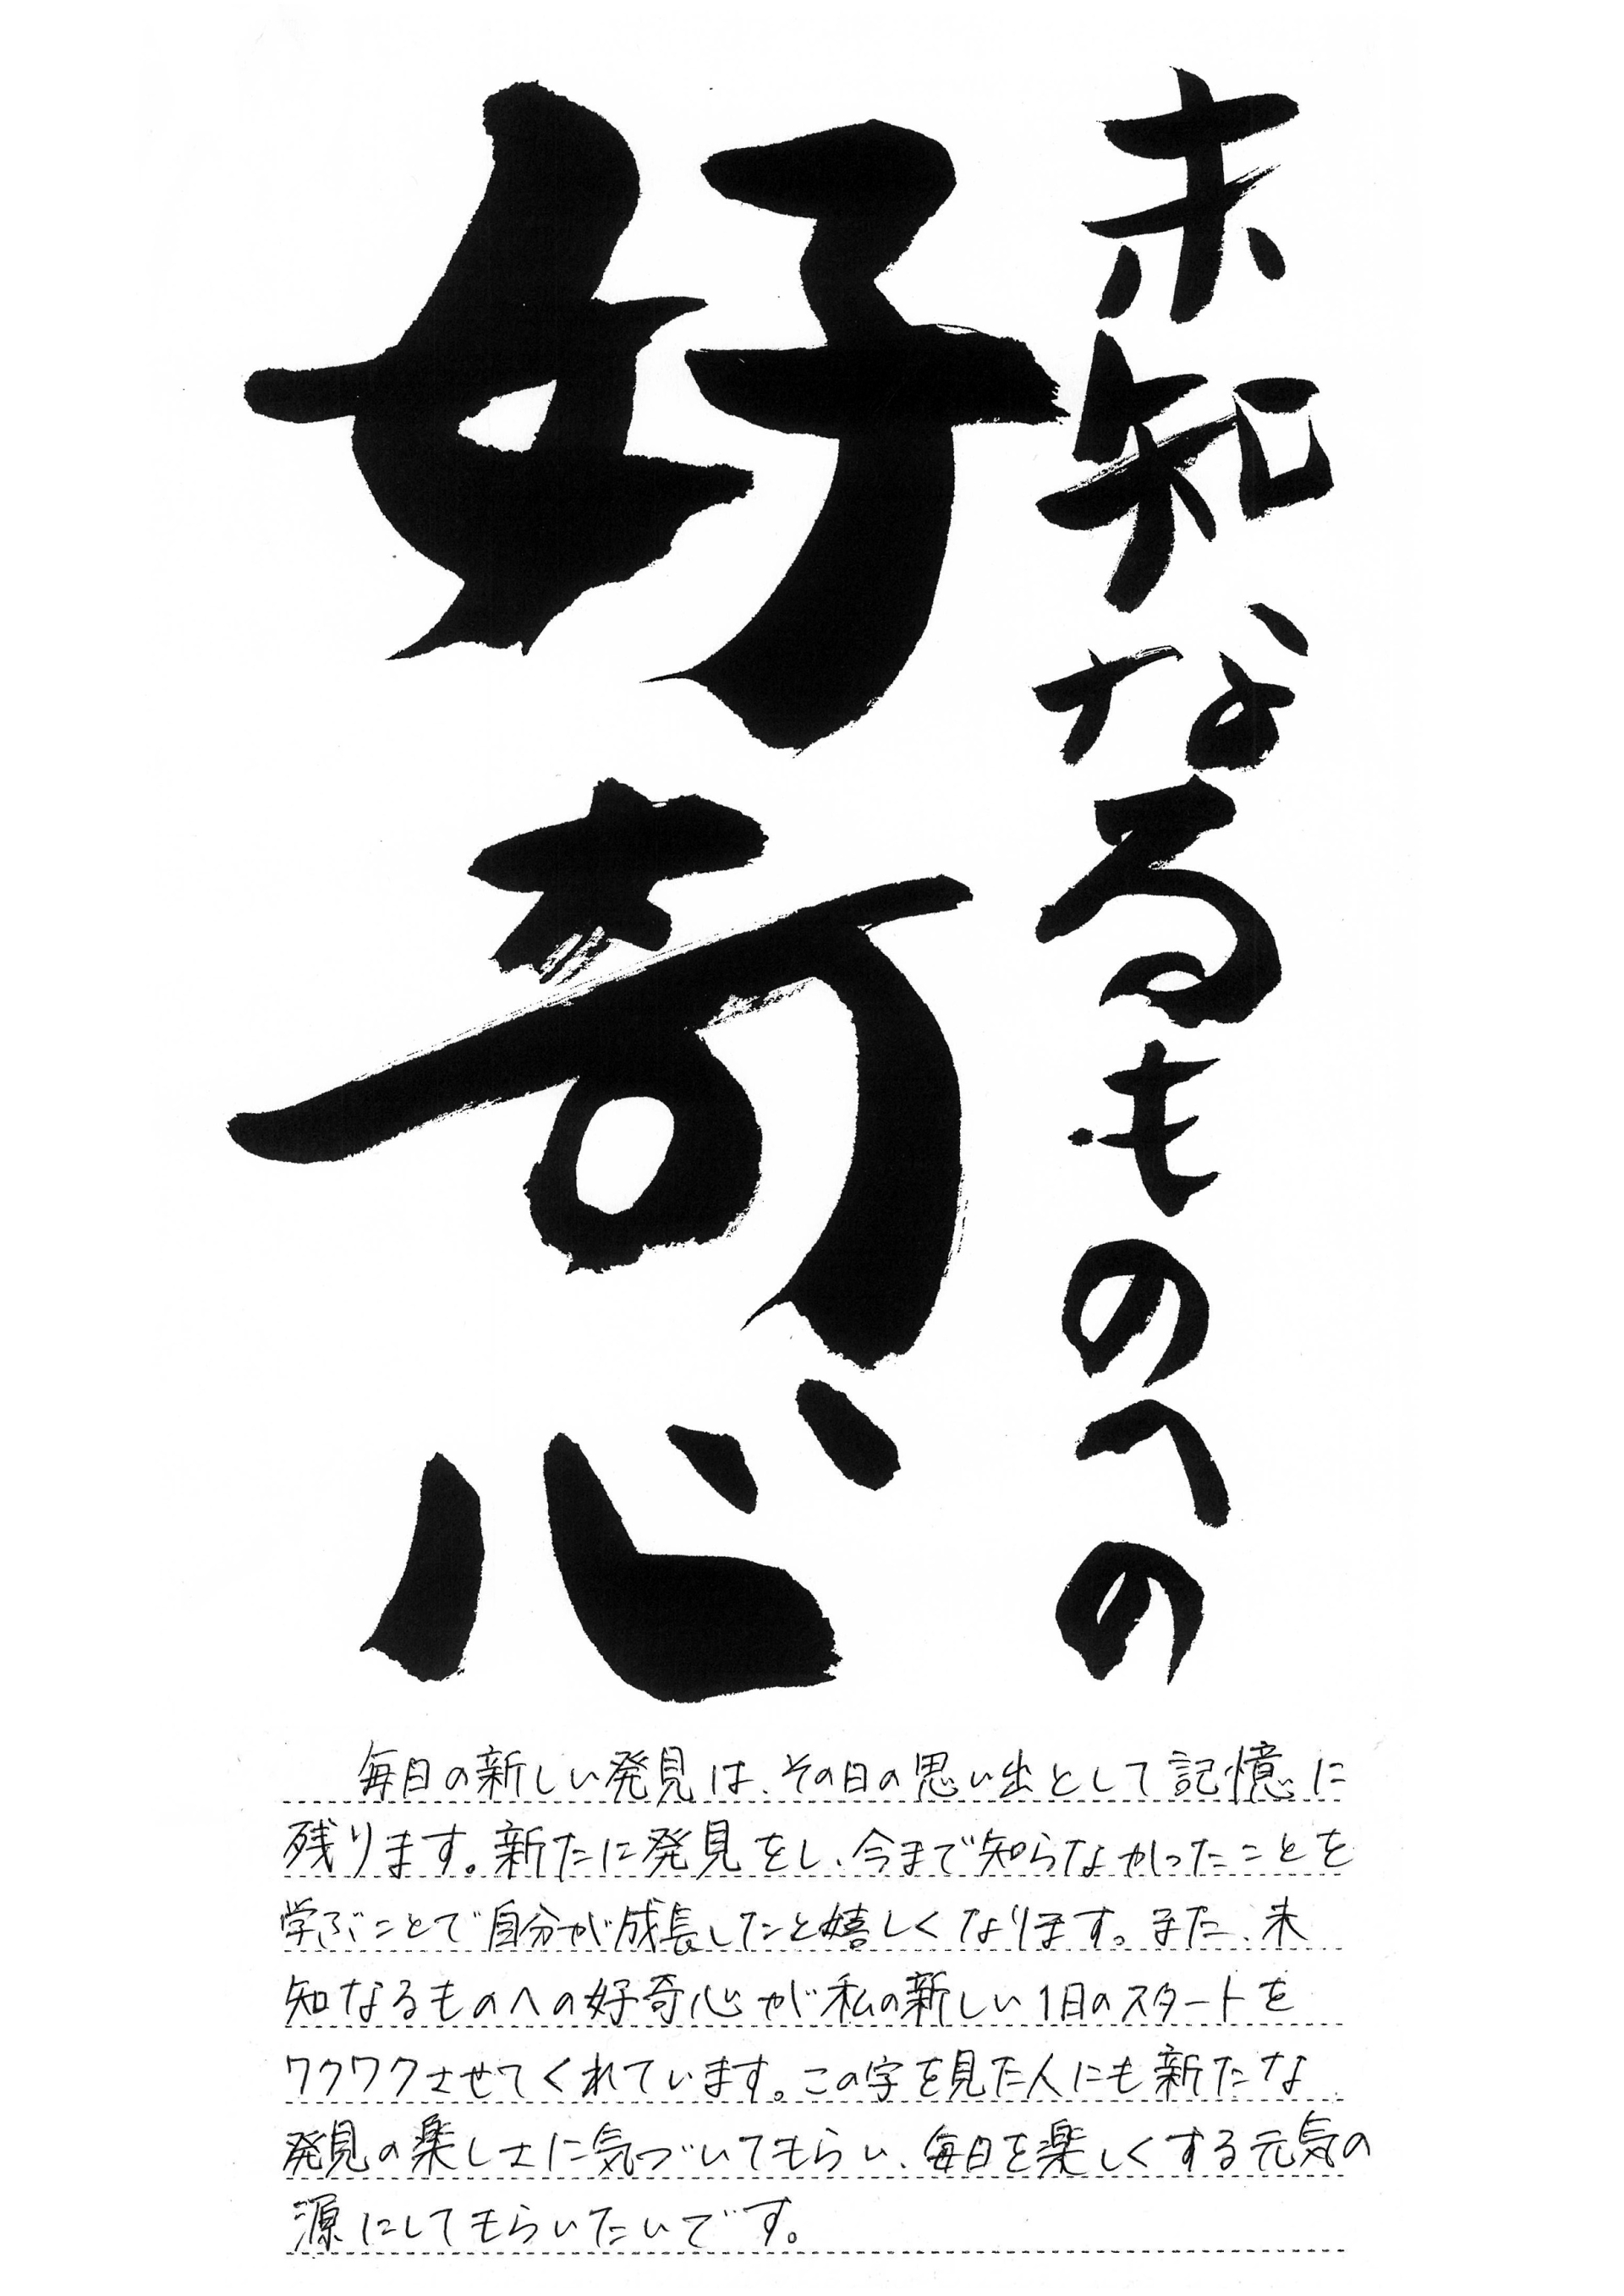 未知なるものへの
好奇心
毎日の新しい発見は、その日の思い出として記憶に
残ります。新たに発見をし、今まで知らなかったことを
学ぶことで自分が成長したと嬉しくなります。また、未
知なるものへの好奇心が私の新しい1日のスタートを
ワクワクさせてくれています。この字を見た人にも新たな
発見の楽しさに気づいてもらい、毎日を楽しくする元気の
源にしてもらいたいです。